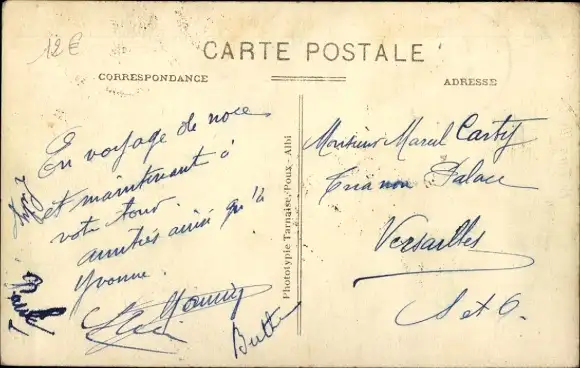 12€
CARTE POSTALE
CORRESPONDANCE
ADRESSE
En voyage de noces
et maintenant à
votre tour
amitiés ainsi qu'à
Yvonne.
Phototypie Tarnaise, Poux - Albi
Monsieur Marcel
Trianon Palace
Versailles
S et O.